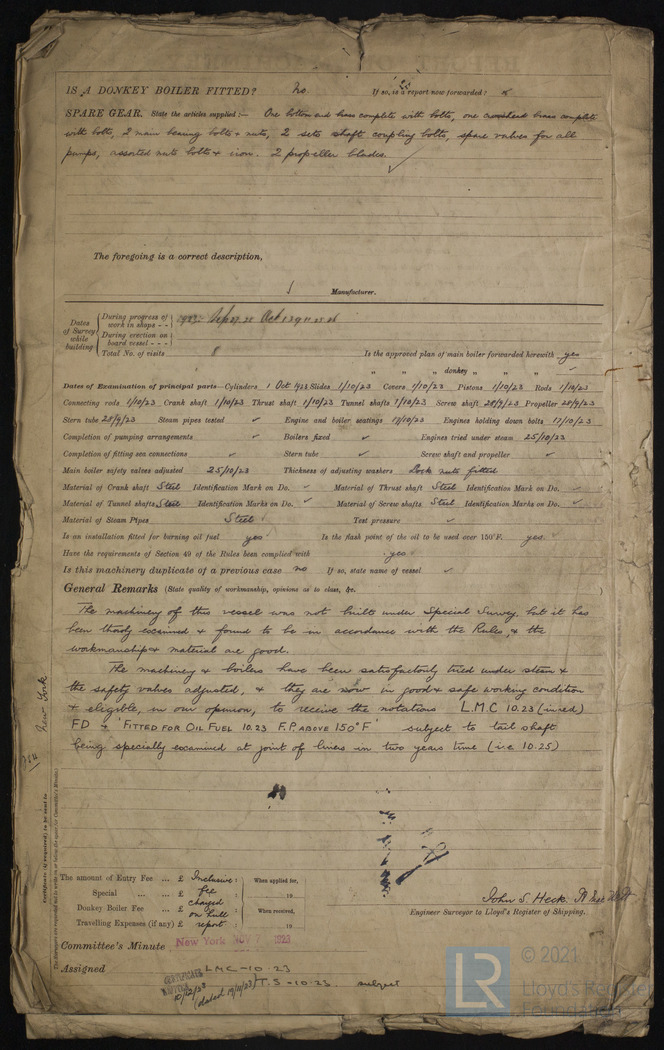 IS A DONKEY BOILER FITTED? no If so, is a report now forwarded?
SPARE GEAR. State the articles supplied:— One bottom end brass complete with bolts, one crosshead brass complete
with bolts, 2 main bearing bolts & nuts, 2 sets shaft coupling bolts, spare valves for all
pumps, assorted nuts bolts & iron. 2 propeller blades.
The foregoing is a correct description,
Manufacturer.
Dates of Survey while building
During progress of work in shops - - 1923: Sep 27. 28 Oct 1 3 9 11 25 26
During erection on board vessel - - -
Total No. of visits 8 Is the approved plan of main boiler forwarded herewith yes
" " " donkey " " "
Dates of Examination of principal parts Cylinders 1 Oct 1923 Slides 1/10/23 Covers 1/10/23 Pistons 1/10/23 Rods 1/10/23
Connecting rods 1/10/23 Crank shaft 1/10/23 Thrust shaft 1/10/23 Tunnel shafts 1/10/23 Screw shaft 28/9/23 Propeller 28/9/23
Stern tube 28/9/23 Steam pipes tested ✓ Engine and boiler seatings 17/10/23 Engines holding down bolts 17/10/23
Completion of pumping arrangements ✓ Boilers fixed ✓ Engines tried under steam 25/10/23
Completion of fitting sea connections ✓ Stern tube ✓ Screw shaft and propeller ✓
Main boiler safety valves adjusted 25/10/23 Thickness of adjusting washers Lock nuts fitted
Material of Crank shaft Steel Identification Mark on Do. ✓ Material of Thrust shaft Steel Identification Mark on Do. ✓
Material of Tunnel shafts Steel Identification Marks on Do. ✓ Material of Screw shafts Steel Identification Marks on Do. ✓
Material of Steam Pipes Steel Test pressure ✓
Is an installation fitted for burning oil fuel yes Is the flash point of the oil to be used over 150°F. yes
Have the requirements of Section 49 of the Rules been complied with yes
Is this machinery duplicate of a previous case no If so, state name of vessel ✓
General Remarks (State quality of workmanship, opinions as to class, &c.
The machinery of this vessel was not built under Special Survey but it has
been thoroly examined & found to be in accordance with the Rules, & the
workmanship & material are good.
The machinery & boilers have been satisfactorily tried under steam &
the safety valves adjusted, & they are now in good & safe working condition
& eligible, in our opinion, to receive the notations L.M.C 10.23 (in red)
FD & 'FITTED FOR OIL FUEL 10.23 F.P. ABOVE 150°F' subject to tail shaft
being specially examined at joint of liners in two years time (i.e 10.25)
New York
Certificate (if required) to be sent to
The amount of Entry Fee ... £ Inclusive : When applied for,
Special ... ... £ fee : 19
Donkey Boiler Fee ... £ charged : When received,
Travelling Expenses (if any) £ on hull report : 19
John S. Heck
Engineer Surveyor to Lloyd's Register of Shipping.
Committee's Minute New York NOV 7 1923
Assigned LMC-10.23
CERTIFICATE WRITTEN
T.S-10.23. subject
LR
© 2021
Lloyd's Register
Foundation